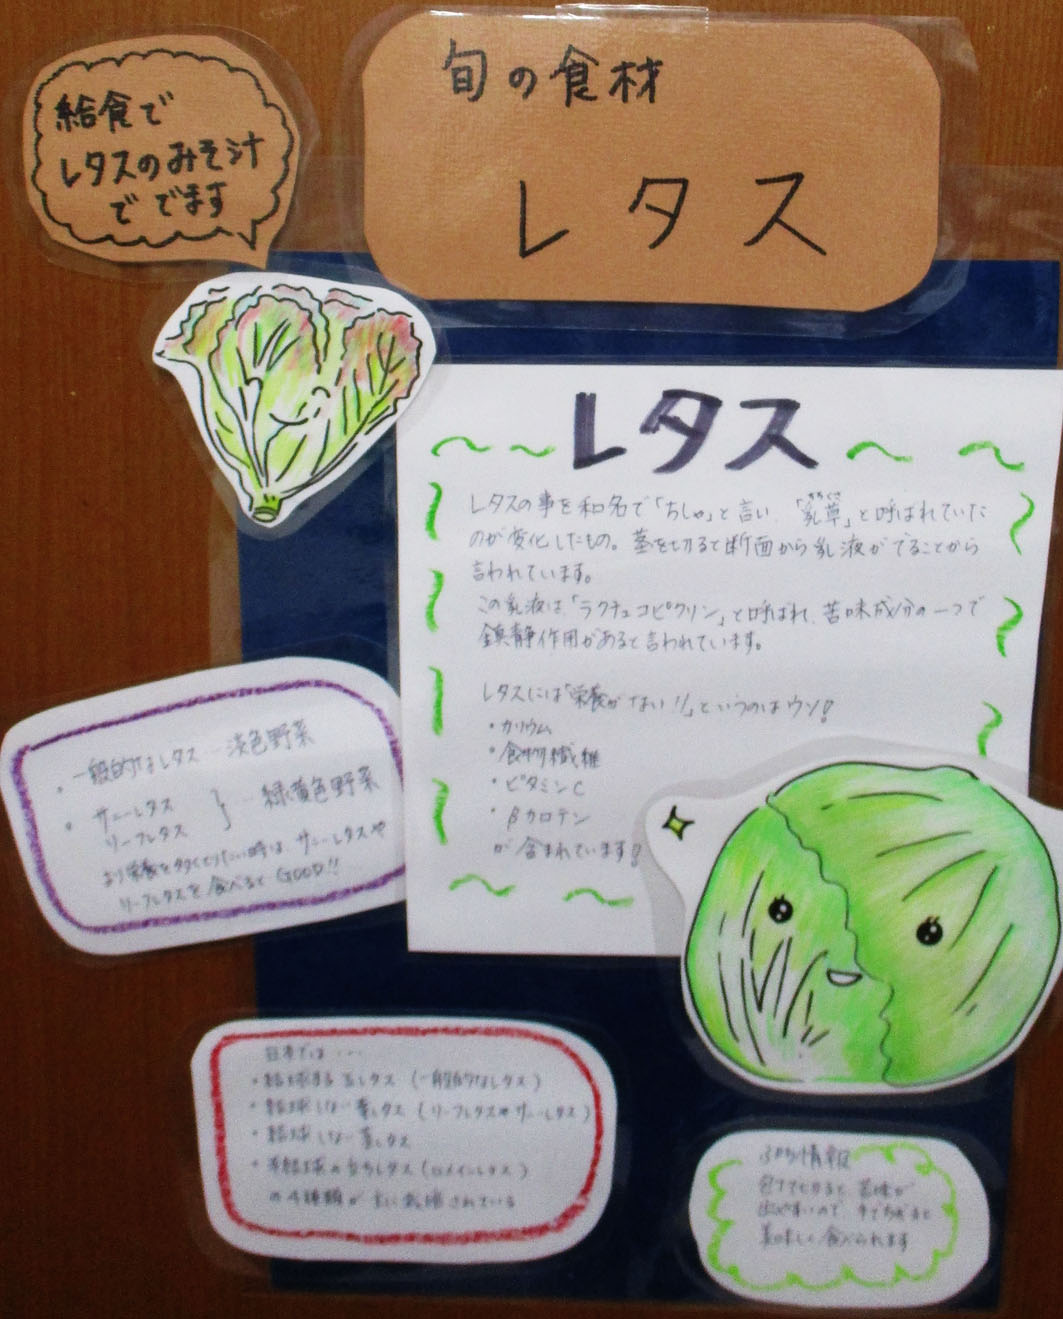 給食で
レタスのみそ汁
で でます
旬の食材
レタス
レタス
レタスの事を和名で「ちしゃ」と言い、「乳草」と呼ばれていた
のが変化したもの。茎を切ると断面から乳液がでることから
言われています。
この乳液は「ラクチュコピクリン」と呼ばれ、苦味成分の一つで
鎮静作用があると言われています。
レタスには「栄養がない!!」というのはウソ!
・カリウム
・食物繊維
・ビタミンC
・βカロテン
が含まれています!
・一般的なレタス…淡色野菜
・サニーレタス
リーフレタス } …緑黄色野菜
より栄養を多くとりたい時は、サニーレタスや
リーフレタスを食べると GOOD!!
日本では・・・
・結球する玉レタス (一般的なレタス)
・結球しない葉レタス (リーフレタスやサニーレタス)
・結球しない茎レタス
・半結球の立ちレタス (ロメインレタス)
の4種類が主に栽培されている
ぷち情報
包丁で切ると苦味が
出やすいので、手でちぎると
美味しく食べられます